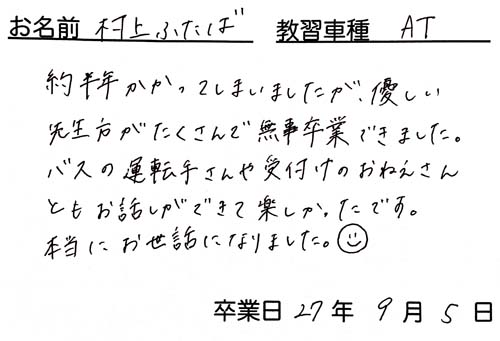 お名前 村上ふたば 教習車種 AT
約半年かかってしまいましたが、優しい
先生方がたくさんで無事卒業できました。
バスの運転手さんや受付けのおねえさん
ともお話しができて楽しかったです。
本当にお世話になりました。☺
卒業日 27年 9月 5日